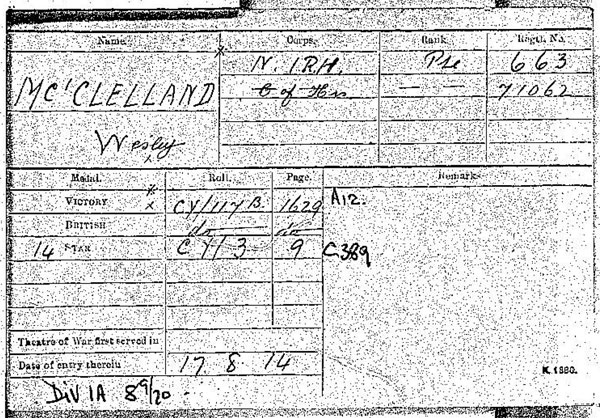 Name. Corps. Rank. Regtl. No.
McCLELLAND N. IRH. Pte 663
C of Hrs — — 71062
Wesley
Medal. Roll. Page. Remarks
VICTORY x CY/117B 1629 A12.
BRITISH do do
14 STAR CY/3 9 C389
Theatre of War first served in
Date of entry therein 17 8 14
K. 1380.
DiV 1A 89/20